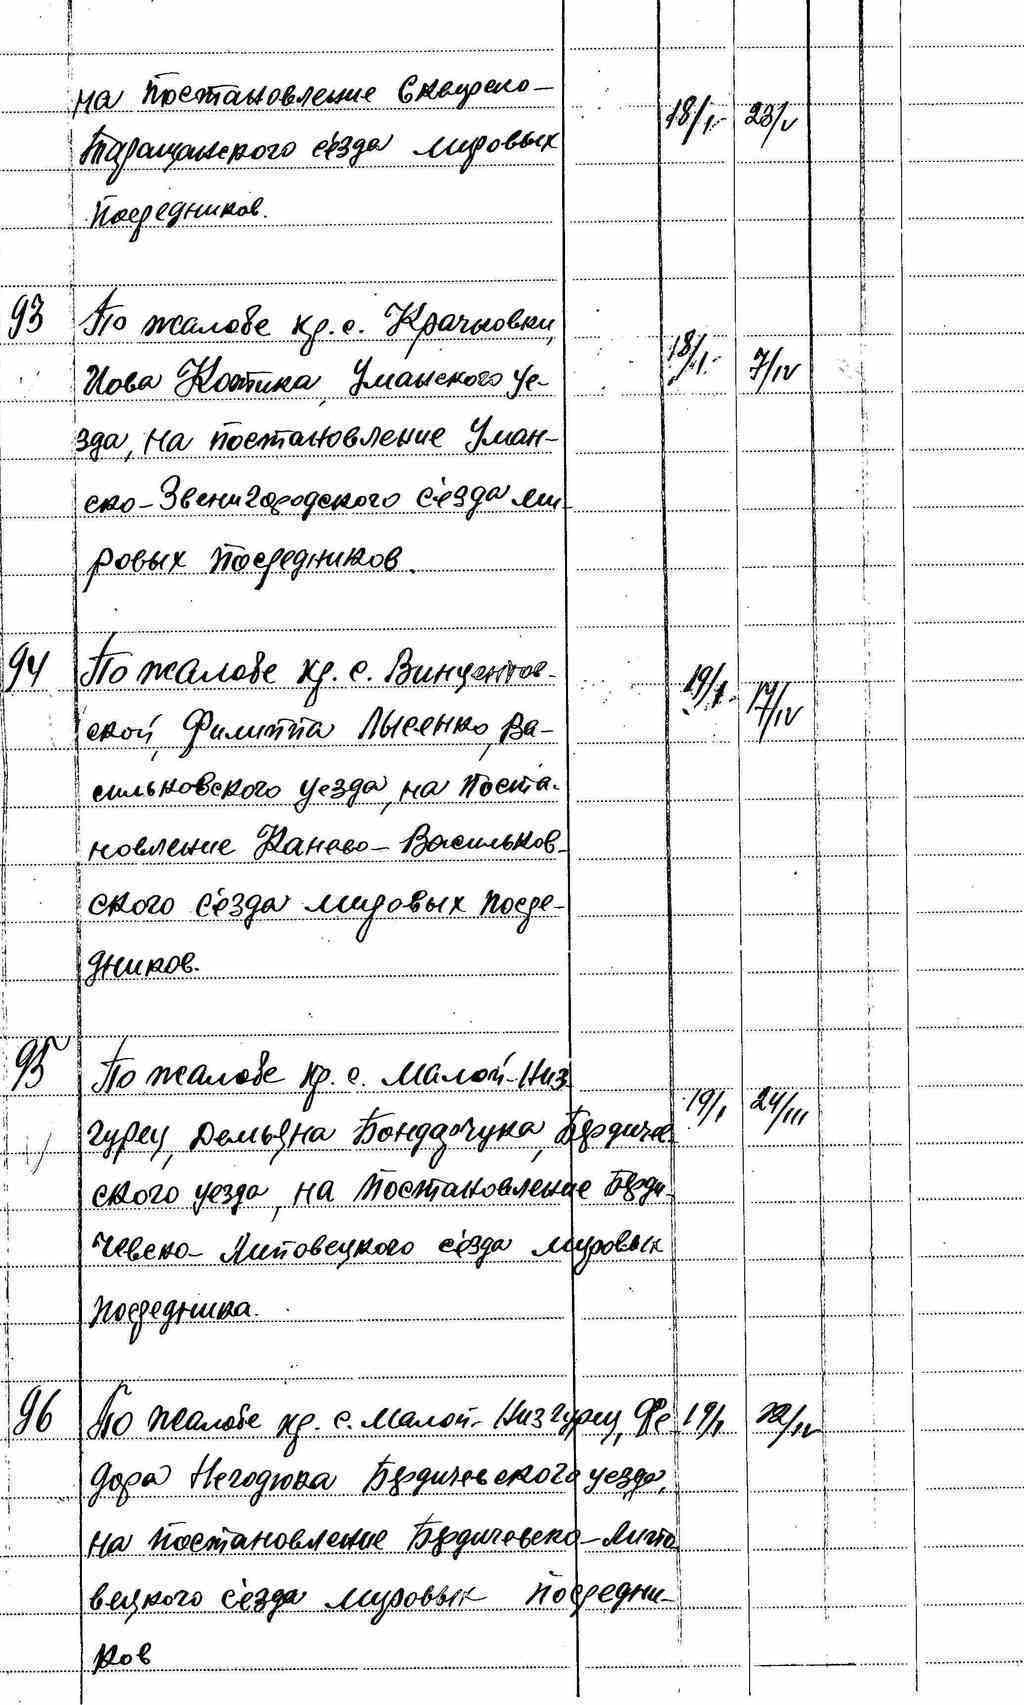 на постановление Сквирско-
Таращанского с'езда мировых 18/I 23/V
посредников.
93 По жалобе кр. с. Крачковки,
Иова Костика, Уманского уе- 18/I 7/IV
зда, на постановление Уман-
ско-Звенигородского с'езда ми-
ровых посредников.
94 По жалобе кр. с. Винцентов- 19/I 17/IV
ской, Филиппа Лысенко, Ва-
сильковского уезда, на поста-
новление Канево-Васильков-
ского с'езда мировых посре-
дников.
95 По жалобе кр. с. Малой-Низ
гурец, Демьяна Бондарчука, Бердичев 19/I 24/III
ского уезда, на постановление Берди-
чевско-Липовецкого с'езда мировых
посредника.
96 По жалобе кр. с. Малой-Низгурец, Фе 19/I 22/IV
дора Негодюка Бердичевского уезда,
на постановление Бердичевско-Липо
вецкого с'езда мировых посредни-
ков